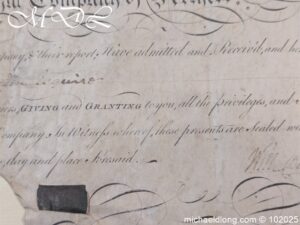 MDL
Company of
pany, & their report, Have admitted and Receiv'd, and
Esquire
ers, GIVING and GRANTING to you, all the privileges, and
Company. In Witness whereof, these presents are Sealed w
e, day and place Aforesaid.
Will
michaeldlong.com © 102025